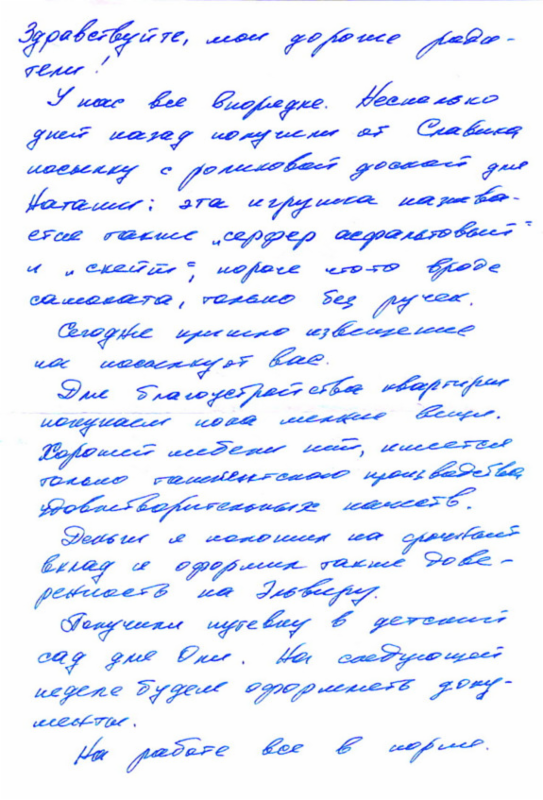 Здравствуйте, мои дорогие роди-
тели!
У нас все впорядке. Несколько
дней назад получили от Славика
посылку с роликовой доской для
Наташи: эта игрушка называ-
ется также „серфер асфальтовый"
и „скейт", короче что-то вроде
самоката, только без ручек.
Сегодня пришло извещение
на посылку от вас.
Для благоустройства квартиры
покупаем пока мелкие вещи.
Хорошей мебели нет, имеется
только ташкентского производства
удовлетворительных качеств.
Деньги я положил на срочный
вклад и оформил также дове-
ренность на Эльвиру.
Получили путевку в детский
сад для Оли. На следующей
неделе будем оформлять доку-
менты.
На работе все в норме.